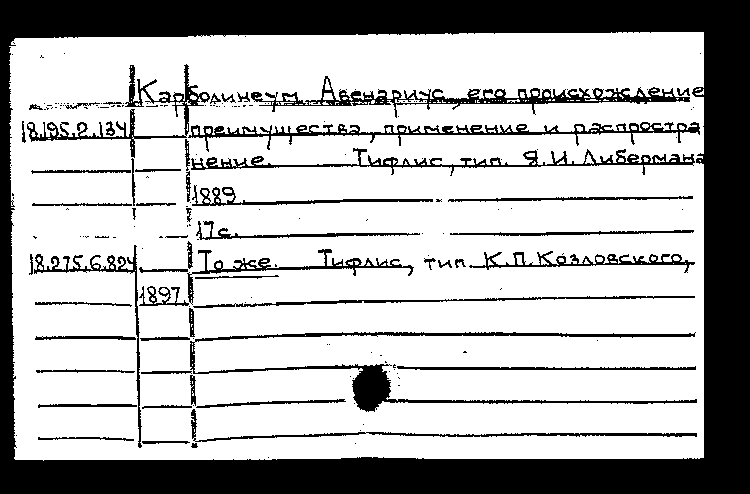 Карболинеум Авенариус, его происхождение
18.195.2.134 преимущества, применение и распростра
нение. Тифлис, тип. Я.И. Либермана
1889.
17с.
18.275.6.824. То же. Тифлис, тип. К.П. Козловского,
1897.